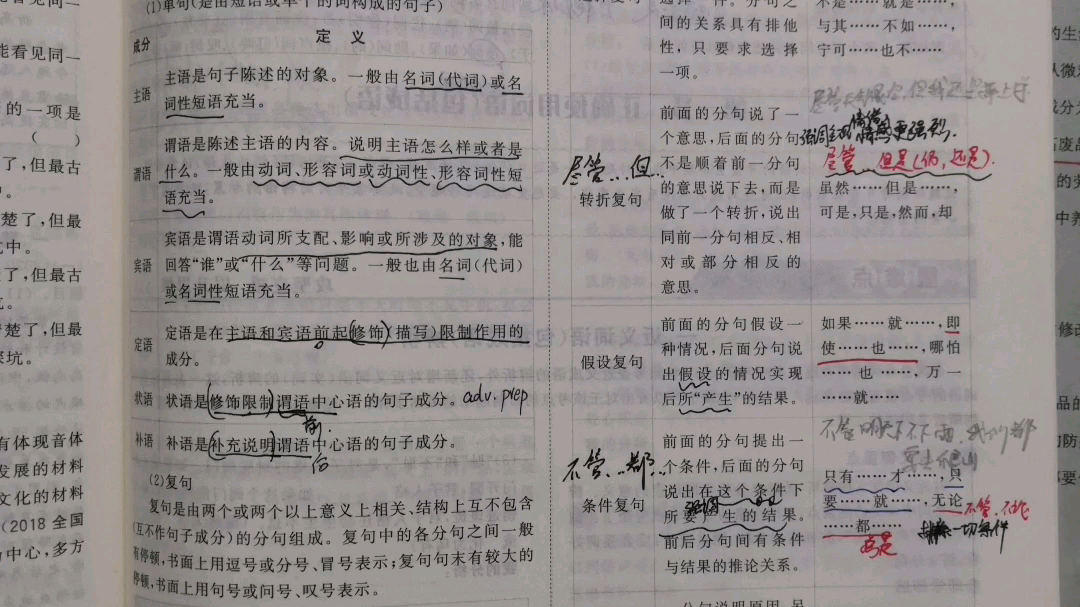 能看见同一
的一项是
( )
了，但最古
楚了，但最
中。
了，但最古
楚了，但最
深坑。
有体现音体
发展的材料
文化的材料
(2018 全国
中心，多方
(1)单句(是由短语或单个的词构成的句子)
成分
定 义
主语
主语是句子陈述的对象。一般由名词(代词)或名
词性短语充当。
谓语
谓语是陈述主语的内容。说明主语怎么样或者是
什么。一般由动词、形容词或动词性、形容词性短
语充当。
宾语
宾语是谓语动词所支配、影响或所涉及的对象，能
回答“谁”或“什么”等问题。一般也由名词(代词)
或名词性短语充当。
定语
定语是在主语和宾语前起(修饰)(描写)限制作用的
成分。
状语
状语是(修饰限制)谓语中心语的句子成分。adv. prep
前
补语
补语是(补充说明)谓语中心语的句子成分。
后
(2)复句
复句是由两个或两个以上意义上相关、结构上互不包含
(互不作句子成分)的分句组成。复句中的各分句之间一般
有停顿，书面上用逗号或分号、冒号表示；复句句末有较大的
停顿，书面上用句号或问号、叹号表示。
间的关系具有排他
性，只要求选择
一项。
不是……就是……，
与其……不如……，
宁可……也不……
尽管…但…
转折复句
前面的分句说了一
个意思，后面的分句
不是顺着前一分句
的意思说下去，而是
做了一个转折，说出
同前一分句相反、相
对或部分相反的
意思。
尽管…但是(仍，还是).
虽然……但是……，
可是，只是，然而，却
假设复句
前面的分句假设一
种情况，后面分句说
出假设的情况实现
后所“产生”的结果。
如果……就……，即
使……也……，哪怕
……也……，万一
……就……
不管…都…
条件复句
前面的分句提出一
个条件，后面的分句
说出在这个条件下
所要产生的结果。
前后分句间有条件
与结果的推论关系。
只有……才……，只
要……就……，无论
……都……
不管、不论
排除一切条件
分句说明原因，另